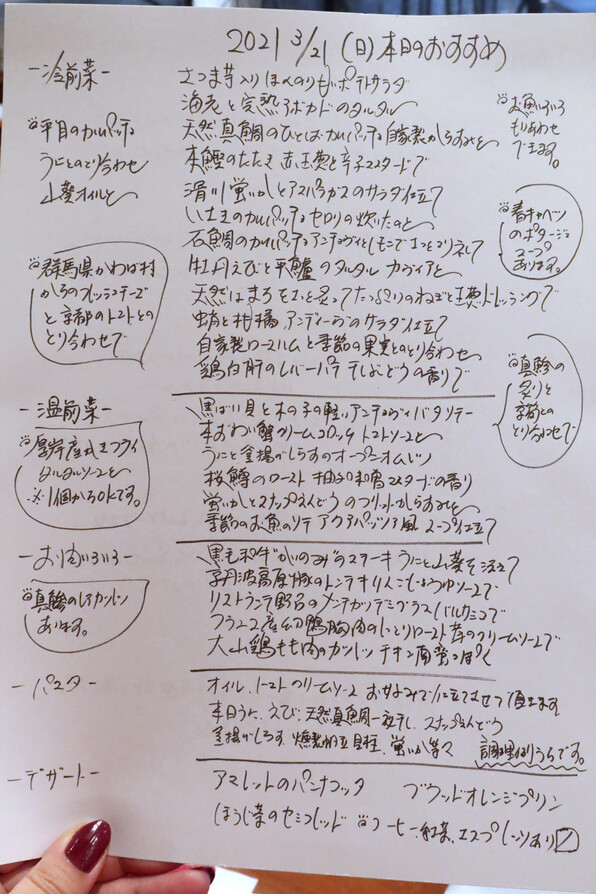 2021 3/21 (日) 本日のおすすめ
-冷前菜-
さつま芋入りほんのり甘いポテトサラダ
海老と完熟アボカドのタルタル
天然真鯛のひとくちカルパッチョ自家製からすみと
本鰹のたたき 赤玉葱と辛子マスタードで
滑川蛍いかとアスパラガスのサラダ仕立て
のカルパッチョ セロリの炊いたのと
石鯛のカルパッチョ アンチョヴィと
牡丹えびと平鱸のタルタル カヴィアと
天然はまちをさっと炙ってたっぷりのねぎと玉葱ドレッシングで
蛸と柑橘 アンディーヴのサラダ仕立て
自家製ロースハムと季節の果実とのとり合わせ
鶏白肝のレバーパテ 干しぶどうの香りで
平目のカルパッチョ
うにとのとり合わせ
山葵オイルと
群馬県かわば村
からのフレッシュチーズ
と京都のトマトとの
とり合わせで
お魚いろいろ
もりあわせ
できます。
春キャベツ
のポタージュ
スープ
あります。
真鯵の
炙りと
とり合わせで
-温前菜-
黒ばい貝と木の子の軽いアンチョヴィバタソテー
本ずわい蟹クリームコロッケ トマトソースと
うにと釜揚げしらすのオープンオムレツ
桜鱒のロースト 柚子味噌マスタードの香り
蛍いかとスナップえんどうのフリット からすみと
季節のお魚のソテー アクアパッツァ風 スープ仕立て
厚岸産かきフライ
タルタルソースと
※1個からOKです。
-お肉いろいろ-
黒毛和牛"かいのみ"のステーキ うにと山葵を添えて
京丹波高原豚のトンテキ りんごしょうゆソースで
リストランテ野呂のメンチカツ デミグラスバルサミコで
フランス産 鴨胸肉のしっとりロースト 茸のクリームソースで
大山鶏もも肉のカツレツ チキン南蛮っぽく
真鯵のレアカツレツ
あります。
-パスタ-
オイル、トマト、クリームソース お好みで仕立てさせて頂きます。
本日うに、えび、天然真鯛一夜干し、スナップえんどう
釜揚げしらす、燻製帆立貝柱、蛍いか等々 調理はりうらです。
-デザート-
アマレットのパンナコッタ ブラッドオレンジプリン
ほうじ茶のセミフレッド コーヒー、紅茶、エスプレッソあり